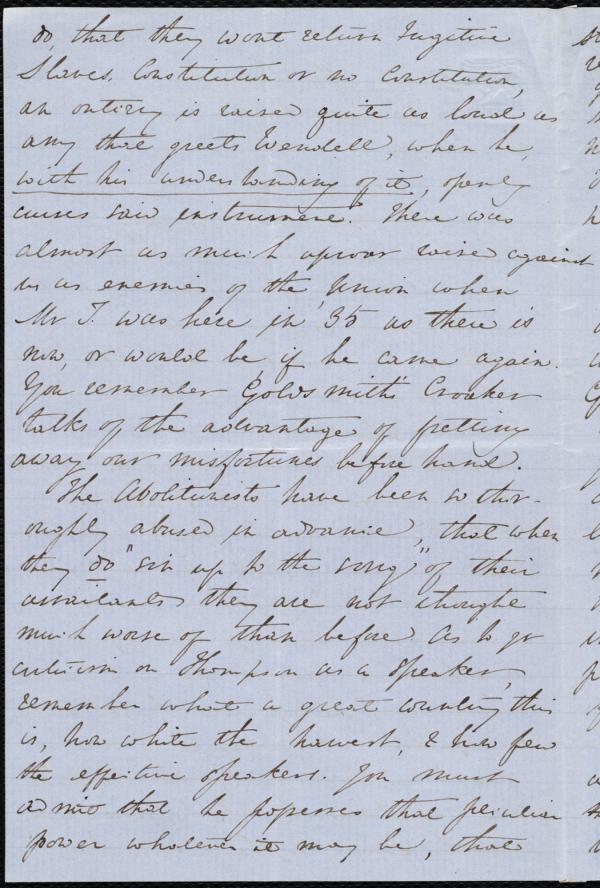 do, that they wont return Fugitive
Slaves, Constitution or no Constitution,
an outcry is raised quite as loud as
any that greets Wendell, when he,
with his understanding of it, openly
curses said instrument. There was
almost as much uproar raised against
us as enemies of the Union when
Mr T. was here in '35 as there is
now, or would be, if he came again.
You remember Goldsmith's Croaker
talks of the advantage of fretting
away our misfortunes before hand.
The Abolitionists have been so thor-
oughly abused in advance, that when
they do "sin up to the song" of their
assailants they are not thought
much worse of than before. As to yr
criticism on Thompson as a speaker,
remember what a great country this
is, how white the harvest, & how few
the effective speakers. You must
admit that he possesses that peculiar
power whatever it may be, that